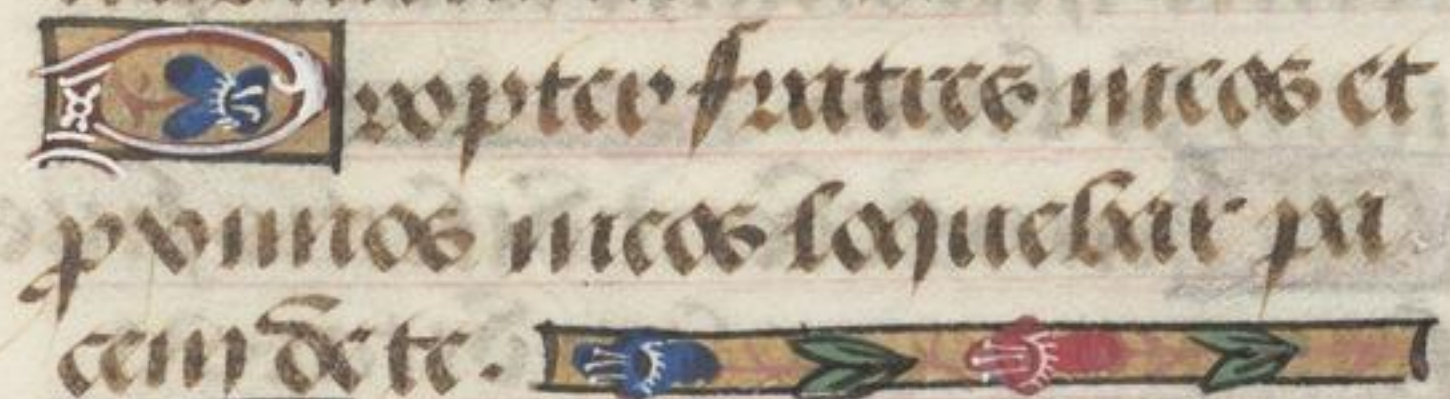 Propter fratres meos et
proximos meos loquebar pa
cem de te.